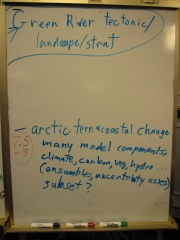 Green River tectonic/
landscape/strat
- arctic terra coastal change
7.5
-8
many model components:
climate, carbon, veg, hydro ...
(ensembles, uncertainty asses)
subset?